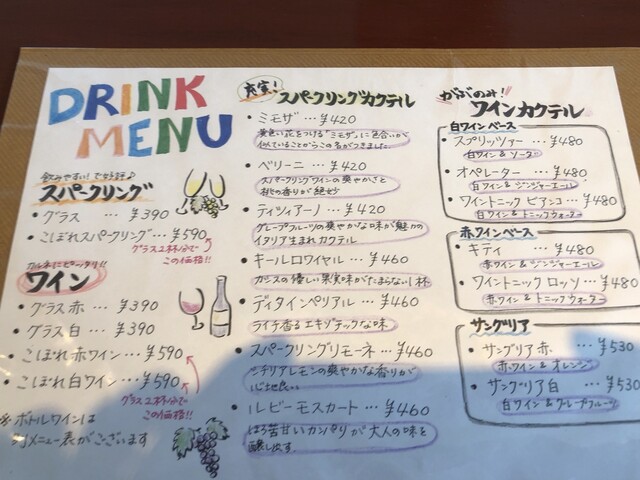 DRINK
MENU
飲みやすい！で好評♪
スパークリング
・グラス … ¥390
・こぼれスパークリング…¥590
グラス2杯分で
この価格!!
カルネにピッタリ!!
ワイン
・グラス赤 … ¥390
・グラス白 … ¥390
・こぼれ赤ワイン…¥590
・こぼれ白ワイン…¥590
グラス2杯分で
この価格!!
※ボトルワインは
別メニュー表がございます
充実！
スパークリングカクテル
・ミモザ … ¥420
黄色い花をつける"ミモザ"に色合いが
似ていることからこの名がつきました。
・ベリーニ … ¥420
スパークリングワインの爽やかさと
桃の香りが絶妙
・ティツィアーノ … ¥420
グレープフルーツの爽やかな味が魅力の
イタリア生まれカクテル
・キールロワイヤル … ¥460
カシスの優しい果実味がたまらない1杯
・ディタインペリアル … ¥460
ライチ香るエキゾチックな味
・スパークリングリモーネ…¥460
シチリアレモンの爽やかな香りが
心地良い
・ルビーモスカート … ¥460
ほろ苦甘いカンパリが大人の味を
醸し出す。
がぶのみ！
ワインカクテル
白ワインベース
・スプリッツァー … ¥480
白ワイン&ソーダ
・オペレーター … ¥480
白ワイン&ジンジャーエール
・ワイントニック ビアンコ…¥480
白ワイン&トニックウォーター
赤ワインベース
・キティ … ¥480
赤ワイン&ジンジャーエール
・ワイントニック ロッソ … ¥480
赤ワイン&トニックウォーター
サングリア
・サングリア赤 … ¥530
赤ワイン&オレンジ
・サングリア白 … ¥530
白ワイン&グレープフルーツ